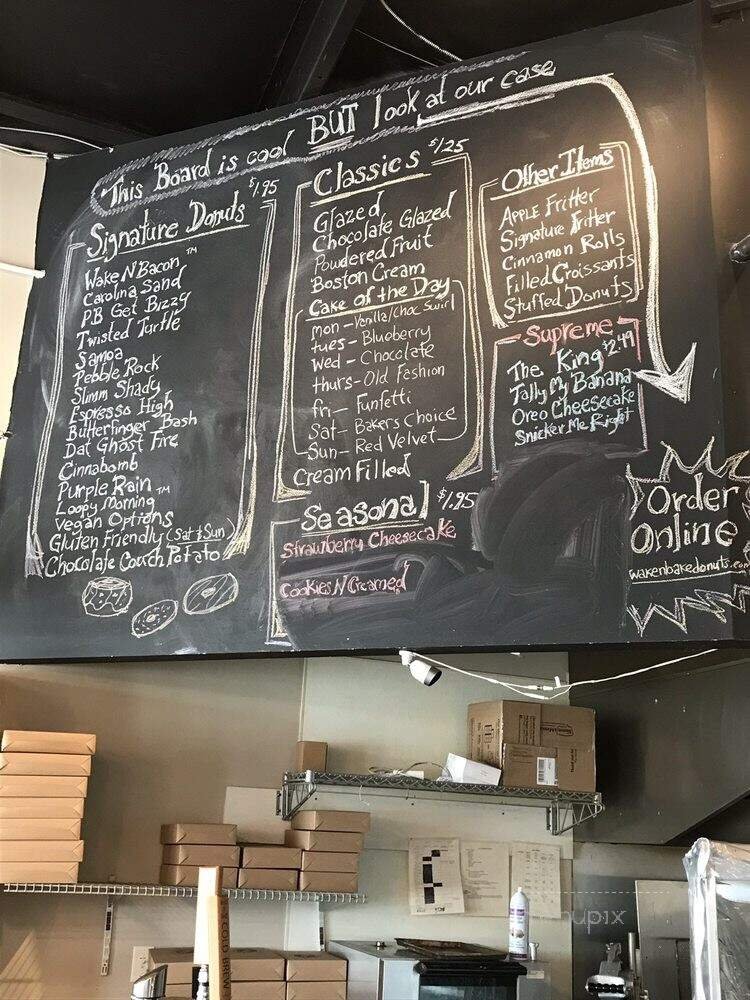 This Board is cool BUT look at our case
Signature Donuts $1.95
Wake N Bacon ™
Carolina Sand
PB Get Bizzy
Twisted Turtle
Samoa
Pebble Rock
Slimm Shady
Espresso High
Butterfinger Bash
Dat Ghost Fire
Cinnabomb
Purple Rain ™
Loopy Morning
Vegan Options
Gluten Friendly (Sat & Sun)
Chocolate Couch Potato
Classics $1.25
Glazed
Chocolate Glazed
Powdered Fruit
Boston Cream
Cake of the Day
mon - Vanilla/Choc Swirl
tues - Blueberry
wed - Chocolate
thurs - Old Fashion
fri - Funfetti
Sat - Bakers Choice
Sun - Red Velvet
Cream Filled
Seasonal $1.95
Strawberry Cheesecake
Cookies N Creamed
Other Items
Apple Fritter
Signature Fritter
Cinnamon Rolls
Filled Croissants
Stuffed Donuts
Supreme
$2.49
The King
Tally My Banana
Oreo Cheesecake
Snicker Me Right
Order
Online
wakenbakedonuts.com
COLD BREW